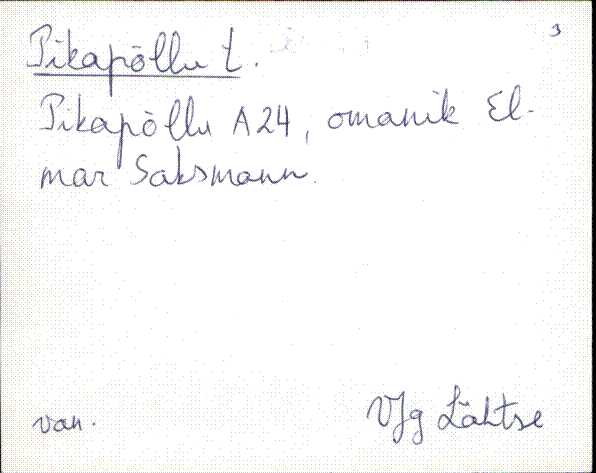 3
Pikapõllu t.
Pikapõllu A24, omanik El-
mar Saksmann.
van.
VJg Lähtse